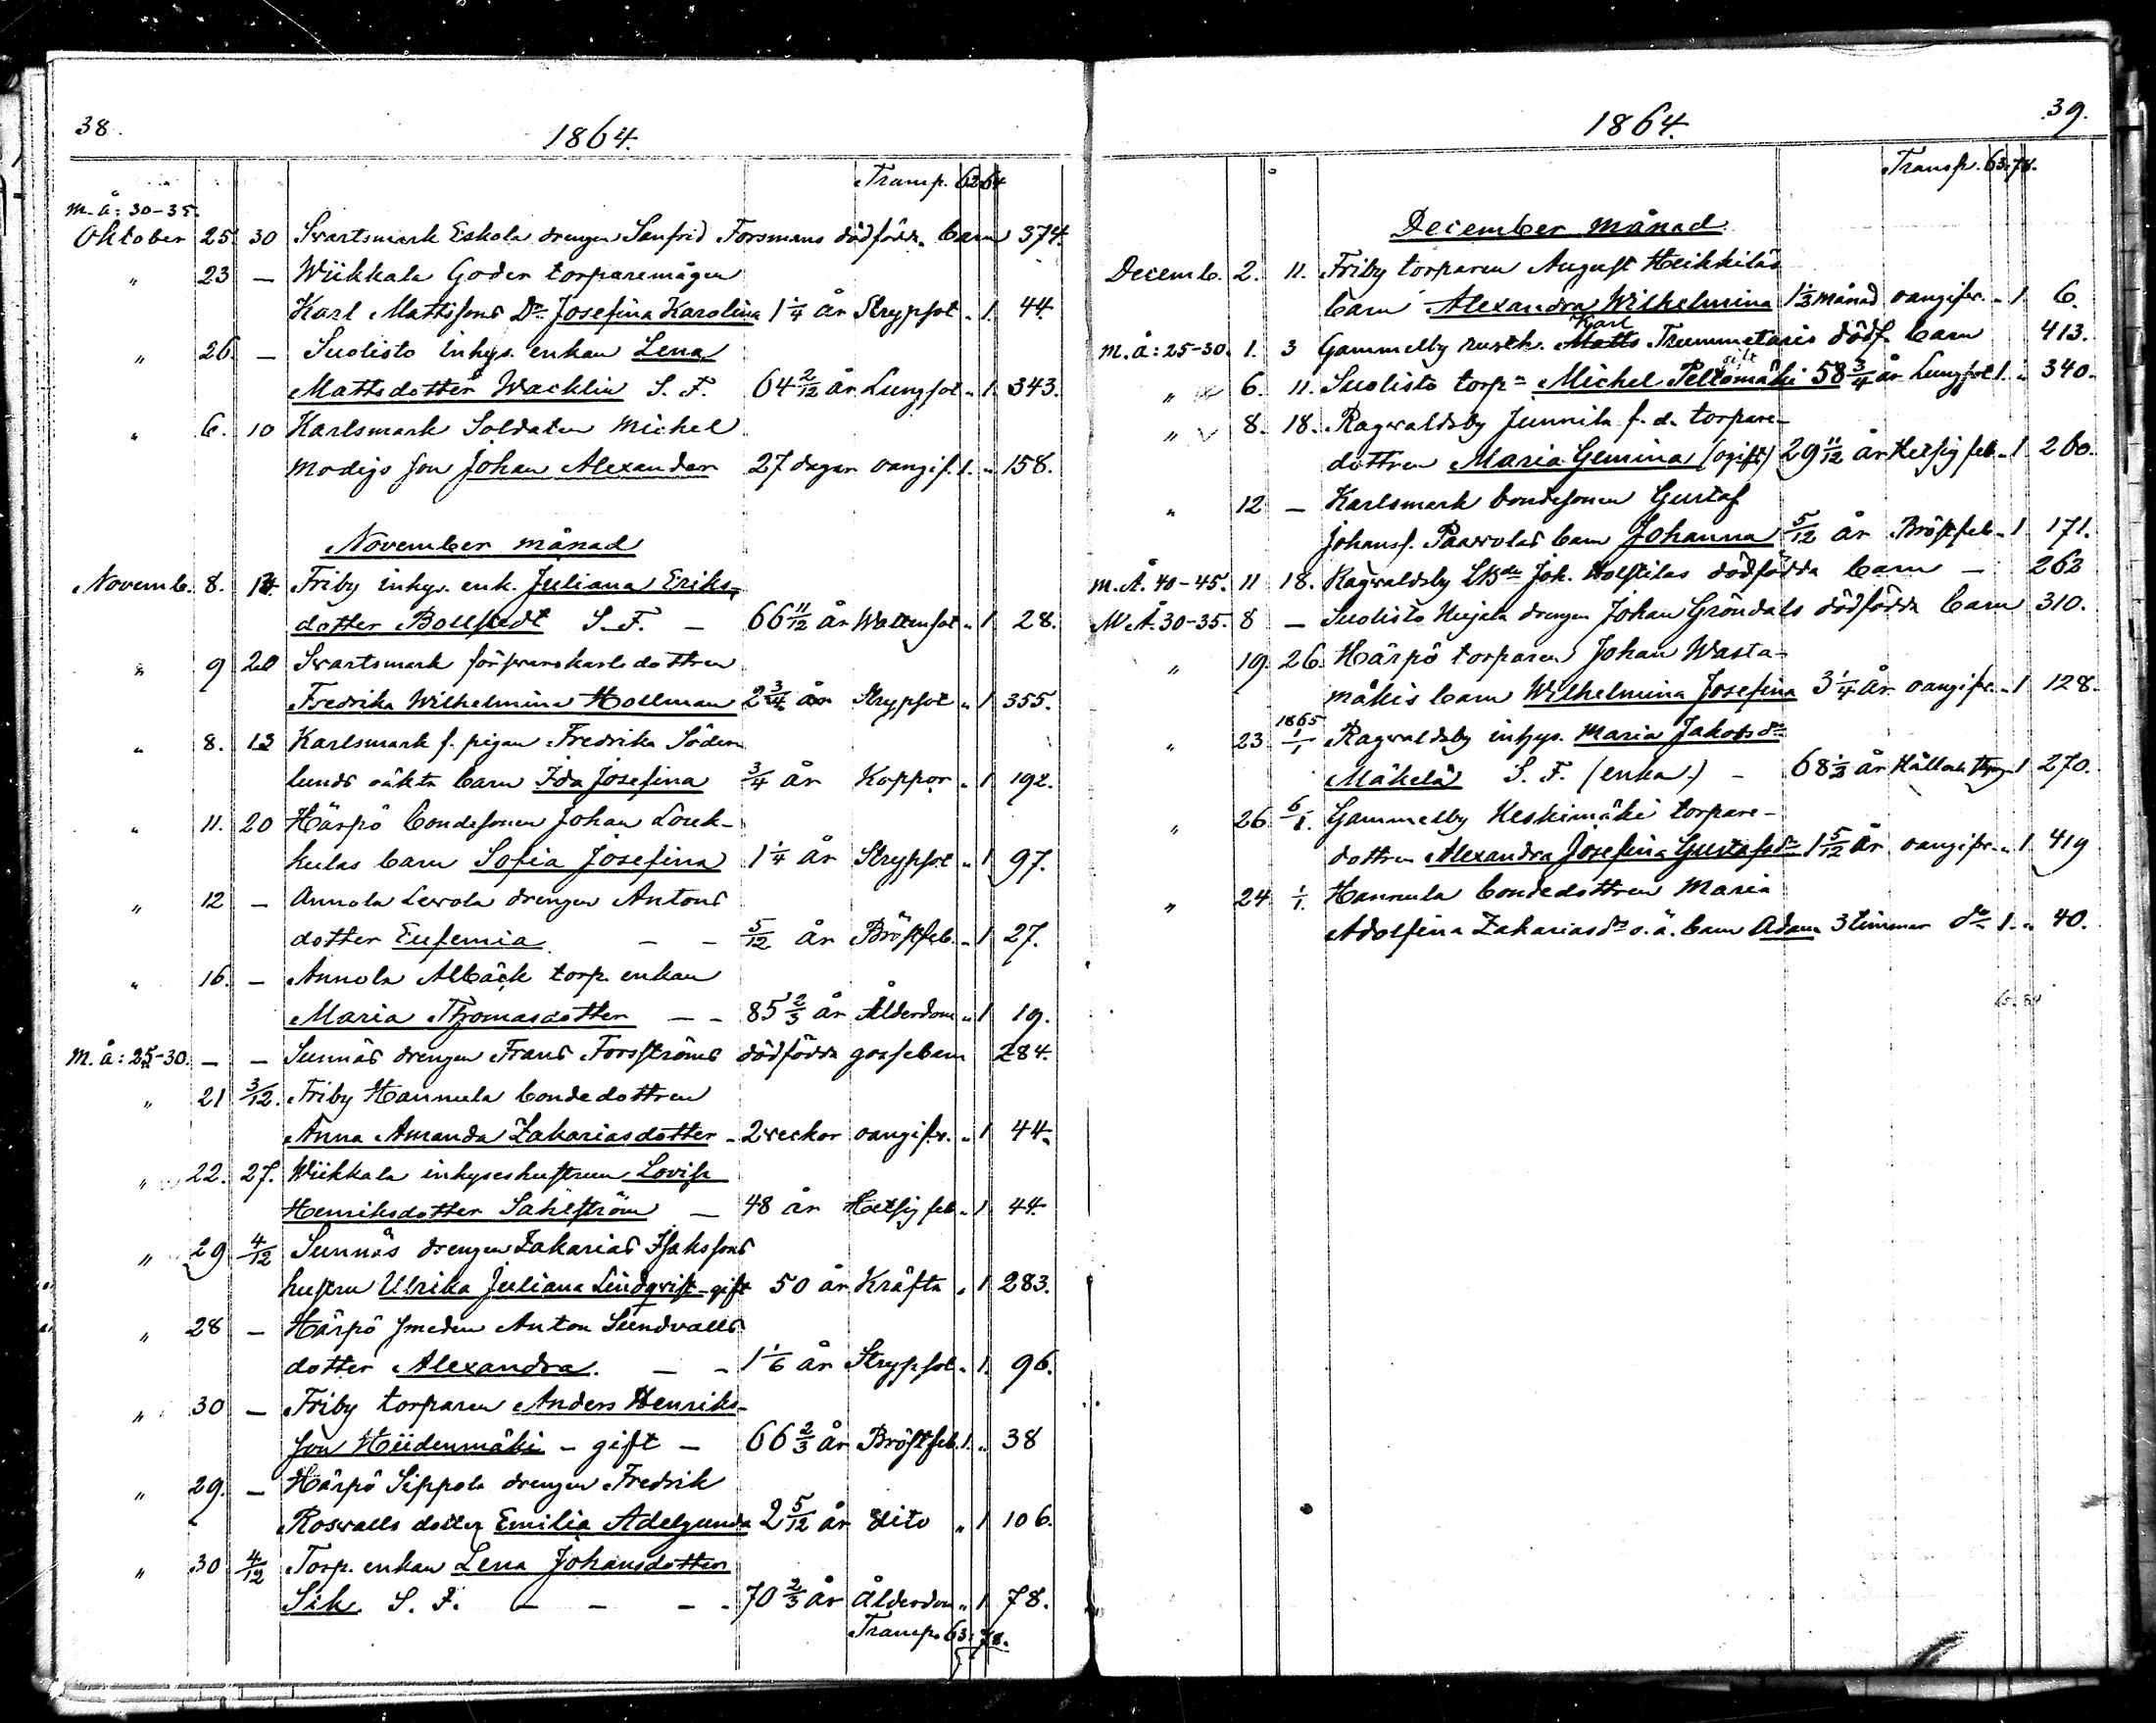 38.
1864.
Transp. 62 64
m.å: 30-35.
Oktober 25. 30 Svartsmark Eskola drengen Sanfrid Forsmans dödfödda barn 374.
" 23 — Wiikkala Goder torparemågen
Karl Mattssons Dr Josefina Karolina 1 1/4 år Strypsot " 1. 44.
" 26 — Suolisto inhys. enkan Lena
Mattsdotter Wacklin S. F. 64 2/12 år Lungsot " 1. 343.
" 6. 10 Karlsmark Soldaten Michel
Modigs son Johan Alexander 27 dagar oangif. 1. " 158.
November månad
Novemb. 8. 14. Friby inhys. enk. Juliana Eriks-
dotter Bollstedt S. F. — 66 11/12 år Wattensot " 1 28.
" 9 20 Svartsmark försvarskarls dottren
Fredrika Wilhelmina Hollman 2 3/4 år Strypsot " 1 355.
" 8. 13 Karlsmark f. pigan Fredrika Söder-
lunds oäkta barn Ida Josefina 3/4 år Koppor " 1 192.
" 11. 20 Härpö bondesonen Johan Louk-
kulas barn Sofia Josefina 1 1/4 år Strypsot " 1 97.
" 12 — Annola Lewola drengen Antons
dotter Eufemia — — 5/12 år Bröstfeb. " 1 27.
" 16. — Annola Albäck torp. enkan
Maria Thomasdotter — — 85 2/3 år Ålderdom " 1 19.
M. å: 25-30. — — Sunnäs drengen Frans Forsströms dödfödda gossebarn 284.
" 21 3/12. Friby Hannula bondedottren
Anna Amanda Zakariasdotter - 2 veckor oangifv. " 1 44.
" 22. 27. Wiikkala inhyseshustrun Lovisa
Henriksdotter Sahlström — 48 år Hetsig feb. " 1 44.
" 29 4/12 Sunnäs drengen Zakarias Isakssons
hustru Ulrika Juliana Lindqvist - gift 50 år Kräfta " 1 283.
" 28 — Härpö smeden Anton Sundvalls
dotter Alexandra. — — 1 1/6 år Strypsot " 1. 96.
" 30 — Friby torparen Anders Henriks-
son Hiidenmäki — gift — 66 2/3 år Bröstfeb. 1. " 38
" 29. — Härpö Sippola drengen Fredrik
Roswalls dotter Emilia Adelgunda 2 5/12 år dito " 1 106.
" 30 4/12 Torp. enkan Lena Johansdotter
Sik. S. F. — — — 70 2/3 år ålderdom " 1. 78.
Transp. 63. 78.
39.
1864.
Transp. 63. 78.
December månad
Decemb. 2. 11. Friby torparen August Heikkiläs
barn Alexandra Wilhelmina 1 1/3 månad oangifv. " 1 6.
Karl
m.å: 25-30. 1. 3 Gammelby rusth. Matts Trummetaris dödf. barn 413.
gift
" 6. 11. Suolisto torpn Michel Peltomäki 58 3/4 år Lungsot 1. " 340.
" 8. 18. Ragvaldsby Junnila f. d. torpare-
dottren Maria Gemina (ogift) 29 11/12 år Hetsig feb. " 1 260.
" 12 — Karlsmark bondesonen Gustaf
Johanss. Paavolas barn Johanna 5/12 år Bröstfeb. " 1 171.
m. Å. 40-45. 11 18. Ragvaldsby LBde Joh. Wolstilas dödfödda barn — 263
M Å. 30-35. 8 — Suolisto Heijala drengen Johan Gröndals dödfödda barn 310.
" 19 26. Härpö torparen Johan Wasta-
mäkis barn Wilhelmina Josefina 3 1/4 år oangifv. " 1 128.
1865
" 23 1/1 Ragvaldsby inhys. Maria Jakobsdr
Mäkelä S. F. (enka.) — 68 1/3 år Håll och styng " 1 270.
" 26 6/1. Gammelby Keskimäki torpare-
dottren Alexandra Josefina Gustafsdr 1 5/12 år oangifv. " 1 419
" 24 1/1. Hannula bondedottren Maria
Adolfina Zakariasdrs o. ä. barn Adam 3 timmar do 1. " 40.